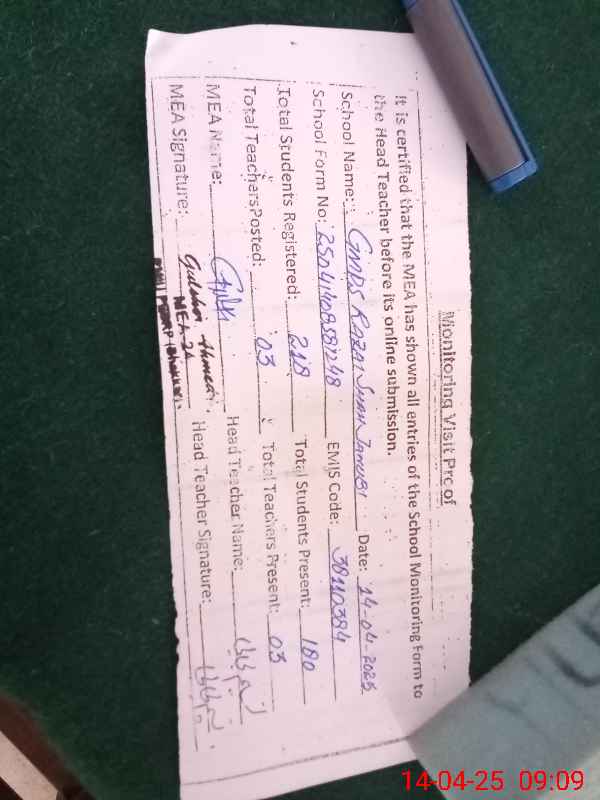 Monitoring Visit Prc of
It is certified that the MEA has shown all entries of the School Monitoring Form to
the Head Teacher before its online submission.
School Name: GMPS RAZAI SHAH JANUBI Date: 14-04-2025
School Form No: EMIS Code: 38110384
Total Students Registered: 218 Total Students Present: 180
Total Teachers Posted: 03 Total Teachers Present: 03
MEA Name: Head Teacher Name:
MEA Signature: Head Teacher Signature:
MEA-24
14-04-25 09:09